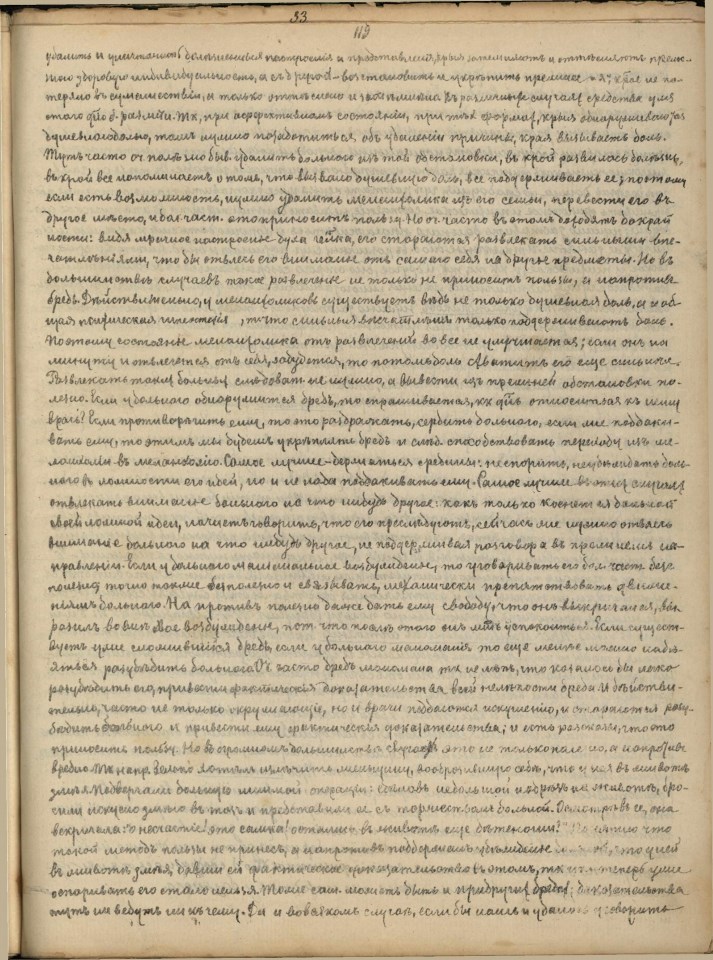 33
119
удалить и уничтожить болезненныя настроения и представления, крыя затемняютъ и оттесняютъ преж-
нюю здоровую индивидуальность, а съ другой - возстановить и укрѣпить прежнее "я", крое не по-
теряно въ сумасшествіи, а только оттѣснено и
этого б. различны. Тк, при аффективномъ состоянiи, при тѣхъ формахъ, крыя обнаруживаются
душевною болью, тоже нужно позаботиться объ удаленiи причины, края вызываетъ боль.
Тутъ часто полезно быв. удалить больного изъ той обстановки, въ крой развилась болѣзнь,
въ крой все напоминаетъ о томъ, что вызвало душевную боль, все поддерживаетъ ее; поэтому
если есть возможность, нужно удалить меланхолика изъ его семьи, перевести его въ
другое мѣсто, и бол. част. это приноситъ пользу. Но оч. часто въ этомъ доходятъ до край
ности: видя мрачное настроенiе духа челка, его стараются развлекать сильными впе-
чатлѣнiями, что бы отвлечь его вниманiе отъ самого себя на другiе предметы. Но въ
большинствѣ случаевъ такое развлеченiе не только не приноситъ пользы, а напротивъ
вредъ. Дѣйствительно, у меланхоликовъ существуетъ вѣдь не только душевная боль, а и об-
щая психическая гиперестезiя, такъ что сильныя впечатлѣнiя только поддерживаютъ боль.
Поэтому состоянiе меланхолика отъ развлеченiя вовсе не улучшается; если онъ на
минуту и отвлечется отъ себя, забудется, то потомъ боль схватитъ его еще сильнѣе.
Развлекать такихъ больныхъ слѣдоват. не нужно, а вывести изъ прежней обстановки по-
лезно. Если у больного обнаружится бредъ, то спрашивается, кк д. относиться къ нему
врачъ? Если противорѣчить ему, то это раздражаетъ, сердитъ больного, если же поддаки-
вать ему, то этимъ мы будемъ укрѣплять бредъ и слѣд. способствовать переходу изъ ме-
ланхолiи въ паранойю. Самое лучшее - держаться средины: не спорить, не убѣждать боль-
ного въ ложности его идей, но и не надо поддакивать ему. Самое лучшее въ этихъ случаяхъ
отвлекать вниманiе больного на что нибудь другое: какъ только коснется больной
своей ложной идеи, начнетъ говорить, что его преслѣдуютъ, сейчасъ же нужно отвлечь
вниманiе больного на что нибудь другое, не поддерживая разговора въ прежнемъ на-
правленiи. Если у больного манiакальное возбужденiе, то уговаривать его бол. част. без-
полезно, точно также безполезно и связывать, механически препятствовать движе-
нiямъ больного. Напротивъ полезно даже дать ему свободу, что онъ выкричался, вы-
разилъ вовнѣ свое возбужденiе, пот. что послѣ этого онъ мжтъ успокоиться. Если сущест-
вуетъ уже сложившiйся бредъ, если у больного мономанiя то еще менѣе можно надѣ-
яться разубѣдить больного. Оч. часто бредъ мономана тк нелѣпъ, что казалось бы легко
разубѣдить его, привести фактическiя доказательства всей нелѣпости бреда. И дѣйстви-
тельно, часто не только окружающiе, но и врачи поддаются искушенiю, и стараются разу-
бѣдить больного и привести ему фактическiя доказательства; и есть разсказы, что это
приноситъ пользу. Но въ огромномъ большинствѣ случаевъ это не только не полезно, а напротивъ
вредно. Тк напр. хотѣли излѣчить женщину, вообразившую себѣ, что у нея въ животѣ
змѣя. Подвергли больную мнимой операцiи: сдѣлавъ небольшой надрѣзъ на животѣ, бро-
сили искусно змѣю въ тазъ и представили ее съ торжествомъ больной. Осмотрѣвъ ее, она
вскричала: "о несчастiе! это самка! остались въ животѣ еще дѣтеныши!" Понятно что
такой методъ пользы не принесъ, а напротивъ поддержалъ убѣжденiе, что у ней
въ животѣ змѣя, давши ей фактическое доказательство въ этомъ, тк что теперь уже
оспаривать его стало нельзя. Тоже сам. можетъ быть и при другихъ бредахъ; доказательства
тутъ не ведутъ ни къ чему. Да и во всякомъ случаѣ, если бы намъ и удалось уговорить